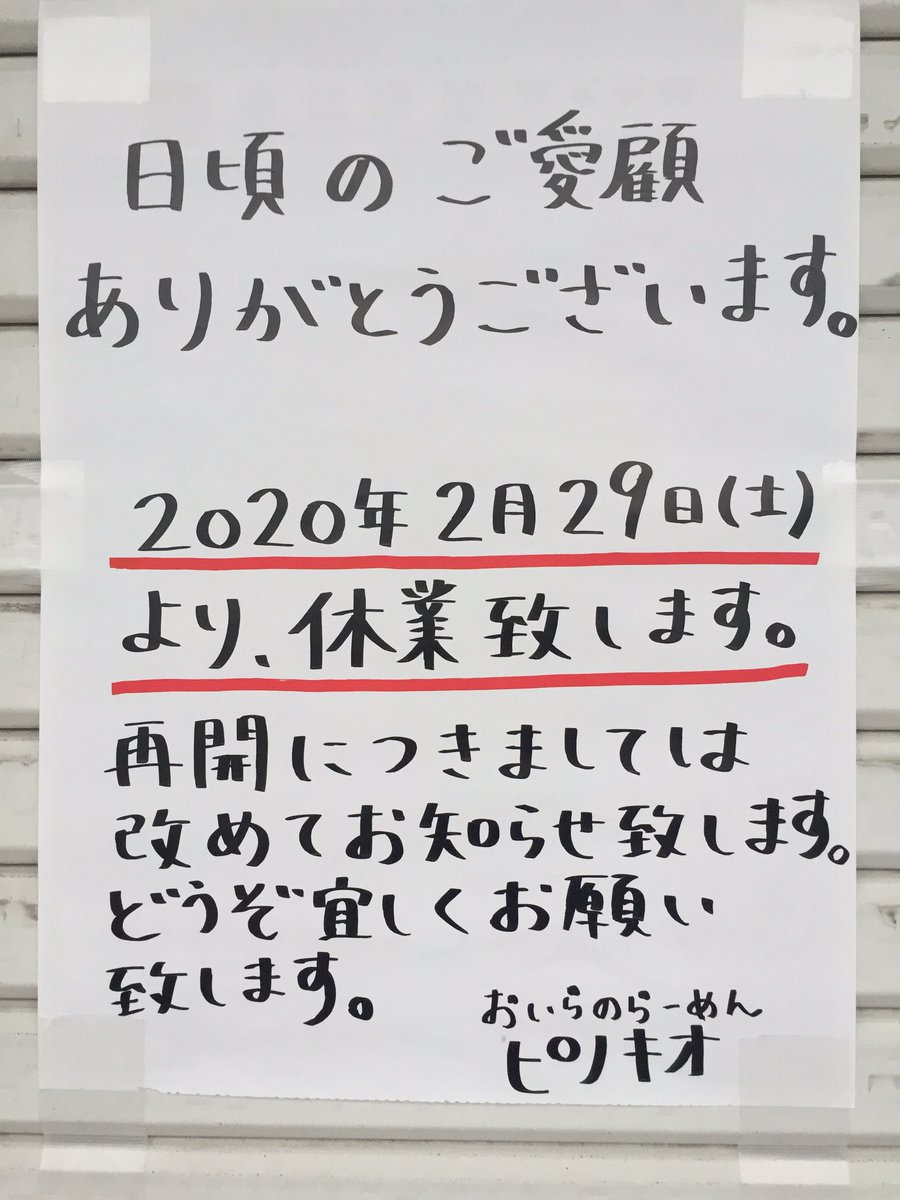 日頃のご愛顧
ありがとうございます。
2020年2月29日(土)
より、休業致します。
再開につきましては
改めてお知らせ致します。
どうぞ宜しくお願い
致します。
おいらのらーめん
ピノキオ